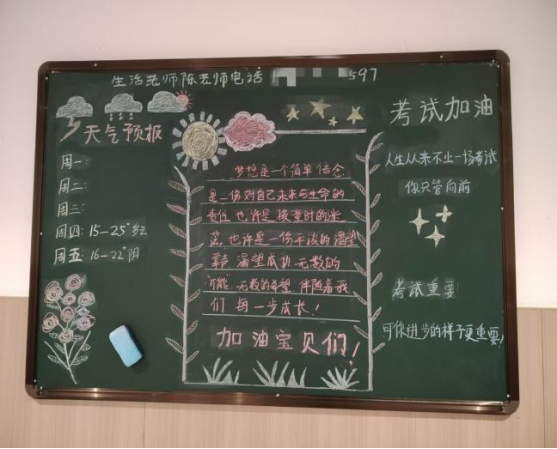 生活老师陈老师电话 597
天气预报
周一:
周二:
周三:
周四: 15-25°
周五: 16-22°阴
梦想是一个简单信念
是一份对自己未来与生命的
责任 也许是
也许是一份平淡的渴望
渴望成功 无数的
可能 无数的希望 伴随着我
们 每一步成长!
加油宝贝们!
考试加油
人生从来不止一场考试
你只管向前
考试重要
可你进步的样子更重要!